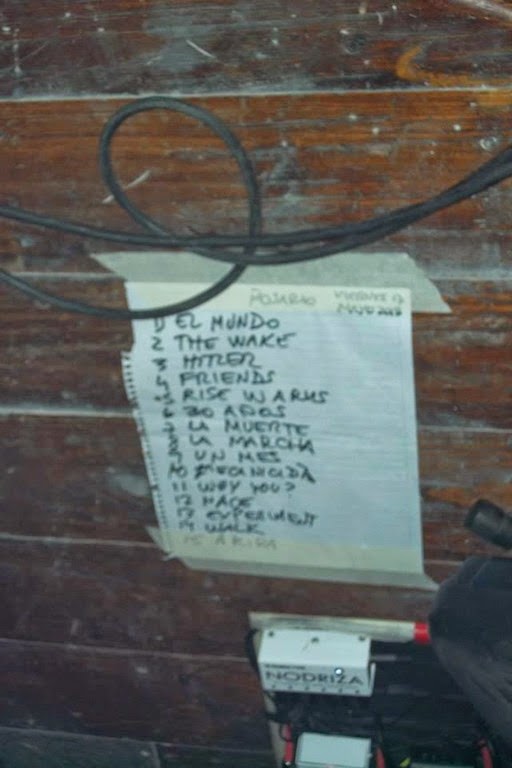 ROSARIO VIERNES 17
MAYO 2013
1) EL MUNDO
2 THE WAKE
3 HITLER
4 FRIENDS
5 RISE IN ARMS
6 30 AÑOS
7 LA MUERTE
8 LA MARCHA
9 UN MES
10
11 WHY YOU?
12 HACE
13 EXPERIMENT
14 WALK
15
NODRIZA